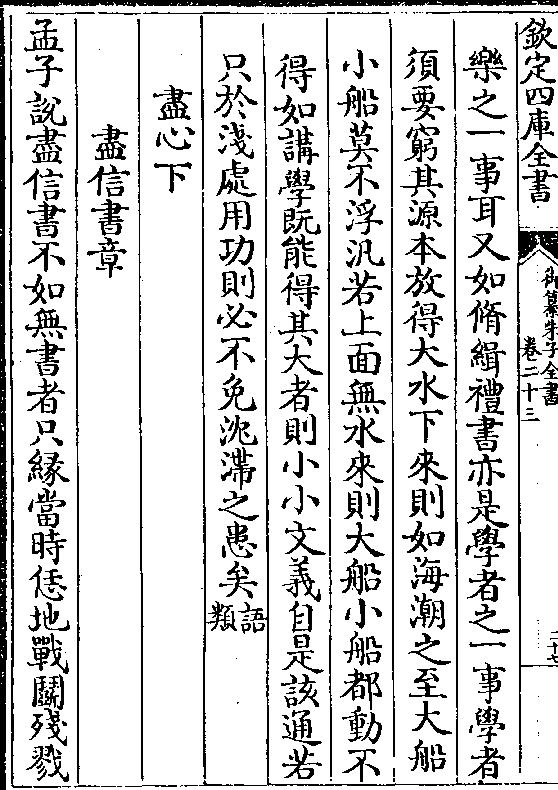 欽定四庫全書
御纂朱子全書
卷二十三
二十七
樂之一事耳又如脩緝禮書亦是學者之一事學者
須要窮其源本放得大水下來則如海潮之至大船
小船莫不浮汎若上面無水來則大船小船都動不
得如講學既能得其大者則小小文義自是該通若
只於淺處用功則必不免沈滯之患矣語類
盡心下
盡信書章
孟子說盡信書不如無書者只緣當時恁地戰鬭殘戮